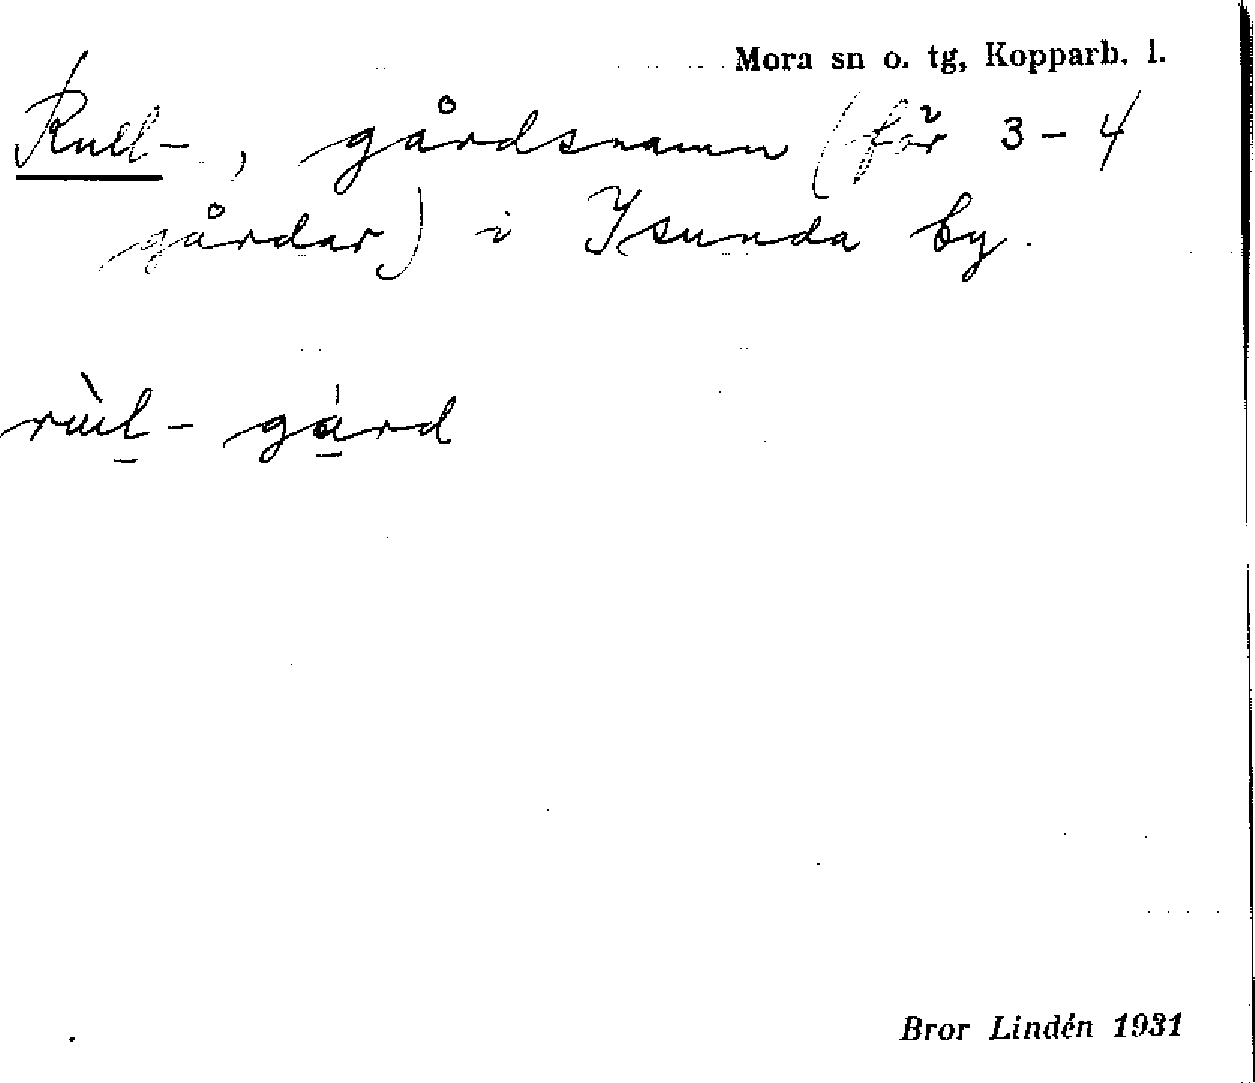 Mora sn o. tg, Kopparb. l.
Rull-, gårdsnamn (för 3-4
gårdar) i Isunda by.
rùl- gárd
Bror Lindén 1931